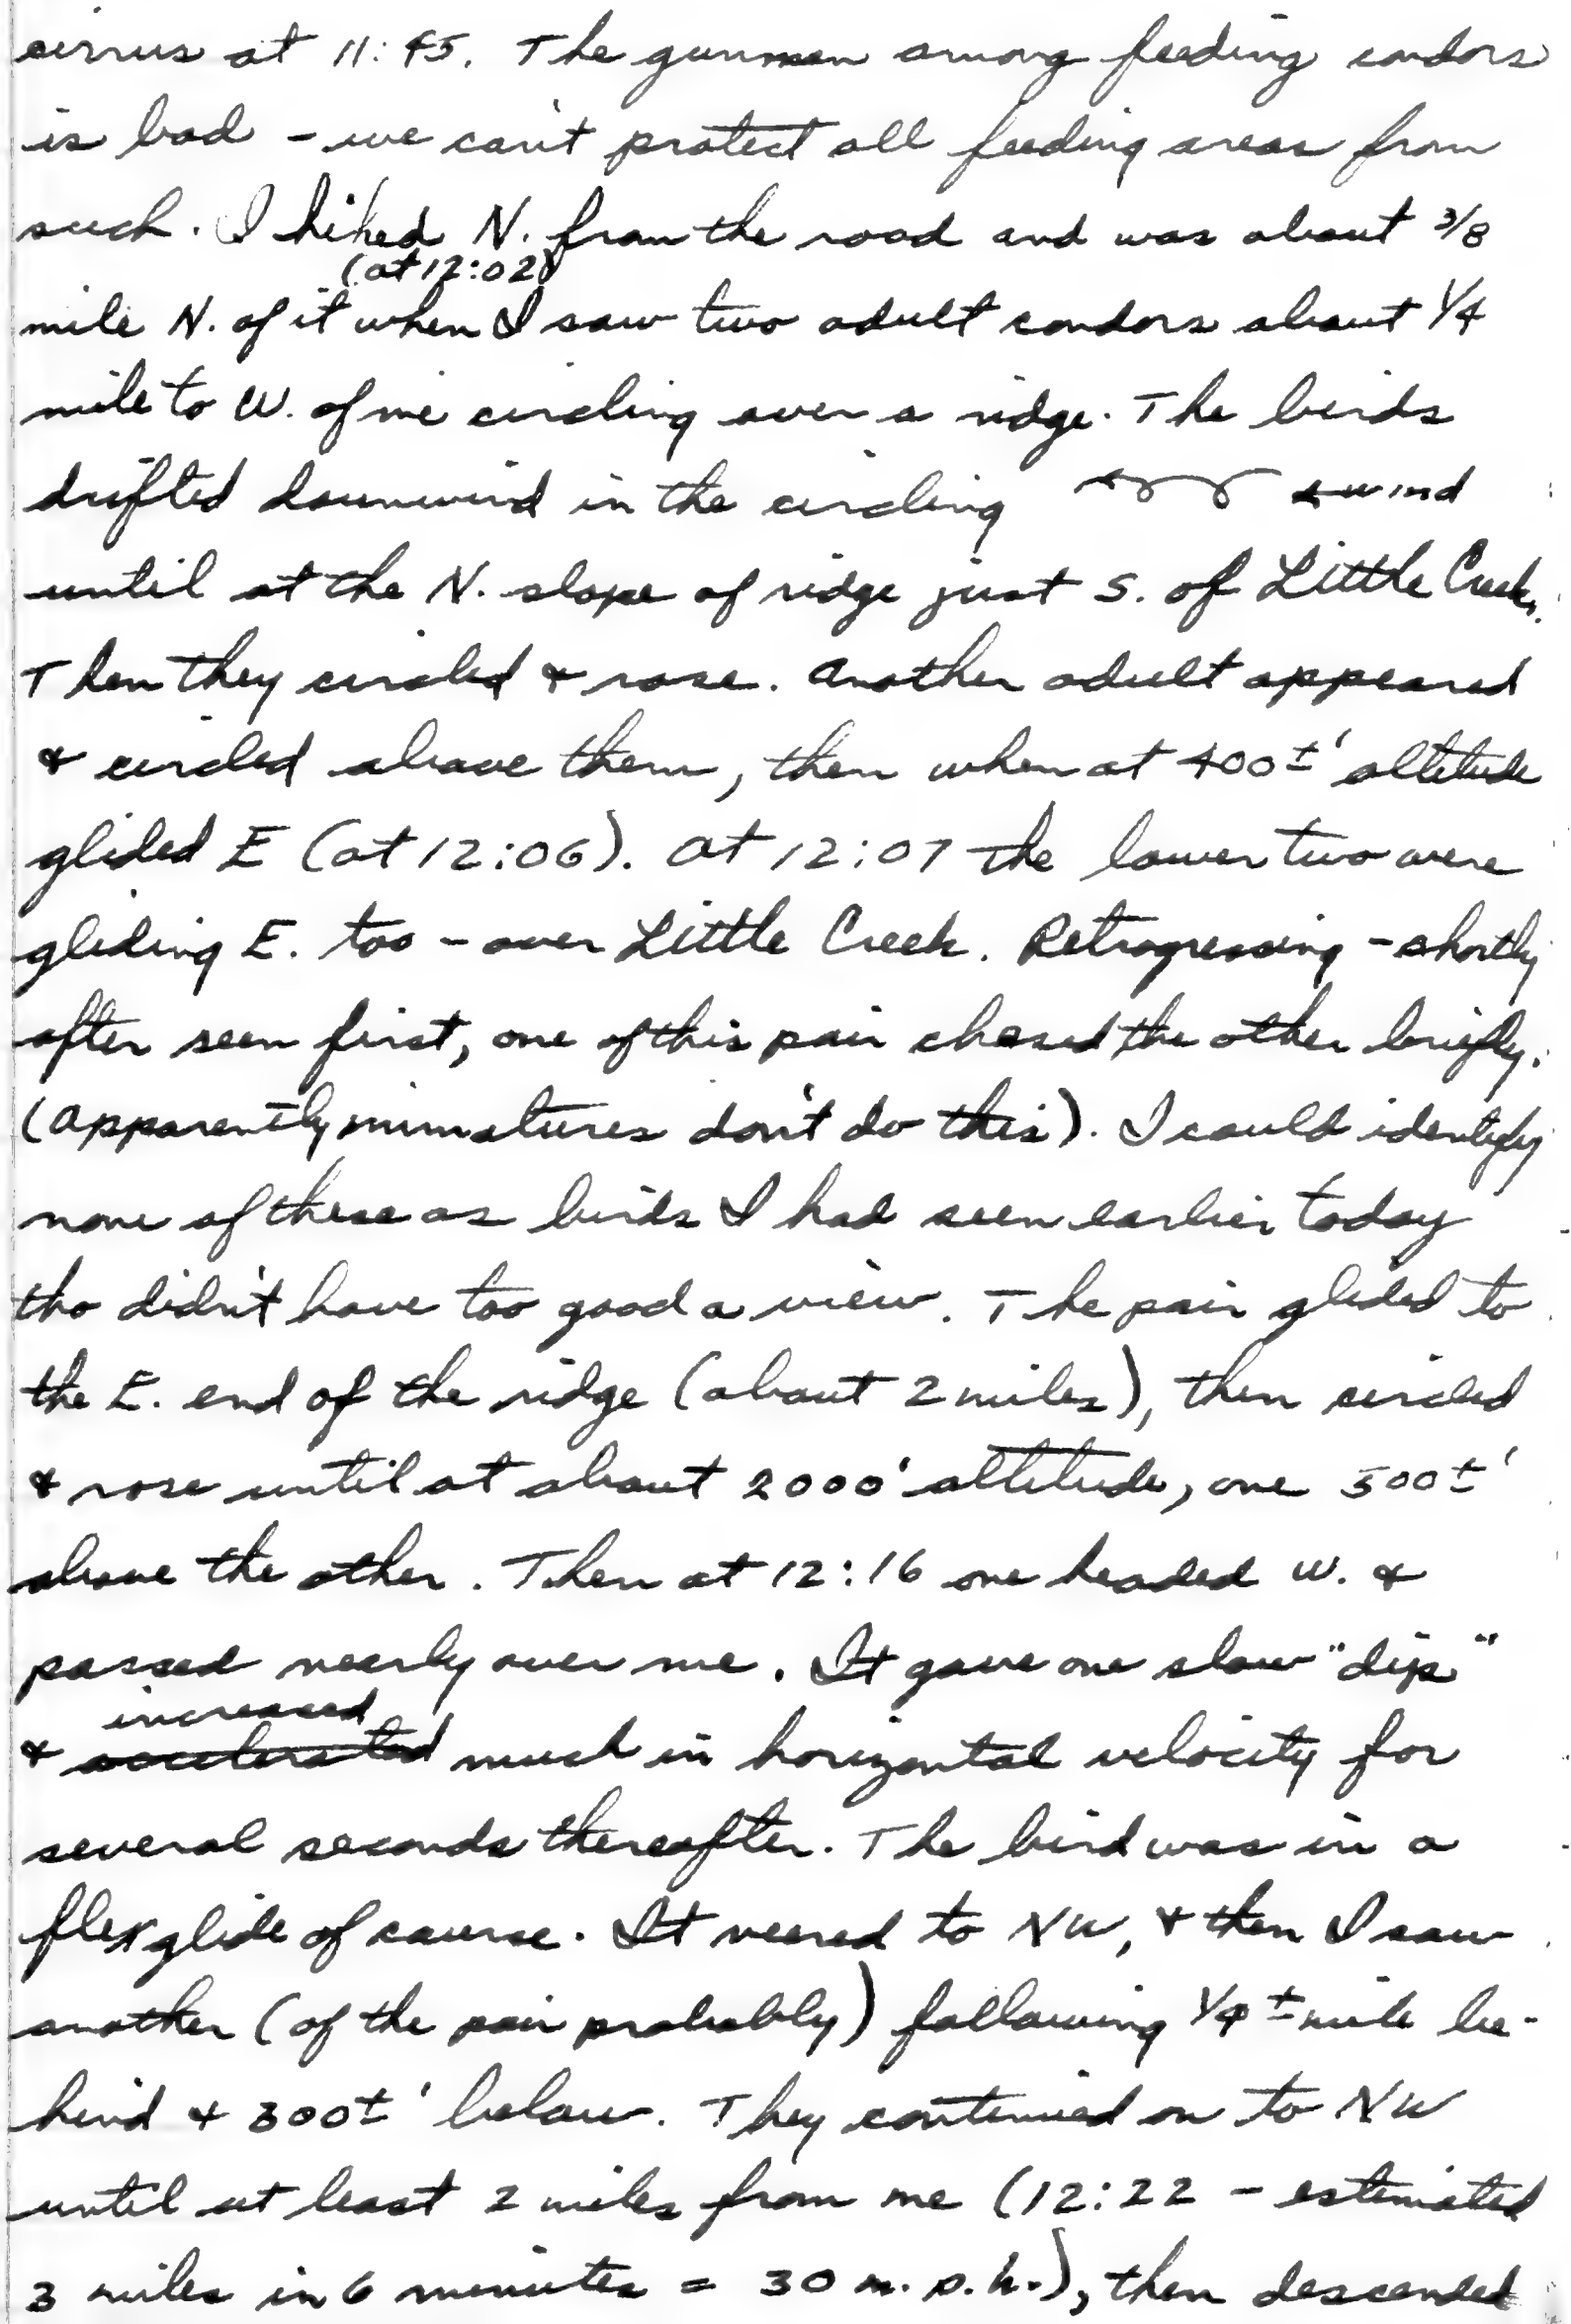 cirrus at 11:45. The gunmen among feeding condors
is bad - we can't protect all feeding areas from
such. I hiked N. from the road and was about 3/8
(at 12:02)
mile N. of it when I saw two adult condors about 1/4
mile to W. of me circling over a ridge. The birds
drifted downwind in the circling ← wind
until at the N. slope of ridge just S. of Little Creek.
Then they circled & rose. Another adult appeared
& circled above them, then when at 400±' altitude
glided E (at 12:06). At 12:07 the lower two were
gliding E. too - over Little Creek. Retrogressing - shortly
after seen first, one of this pair chased the other briefly.
(Apparently immatures don't do this). I could identify
none of these as birds I had seen earlier today
tho didn't have too good a view. The pair glided to
the E. end of the ridge (about 2 miles), then circled
& rose until at about 2000' altitude, one 500±'
above the other. Then at 12:16 one headed W. &
passed nearly over me. It gave one slow "dip"
increased
& accelerated much in horizontal velocity for
several seconds thereafter. The bird was in a
flex glide of course. It veered to NW, & then I saw
another (of the pair probably) following 1/4 ± mile be-
hind & 300±' below. They continued on to NW
until at least 2 miles from me (12:22 - estimated
3 miles in 6 minutes = 30 m.p.h.), then descended